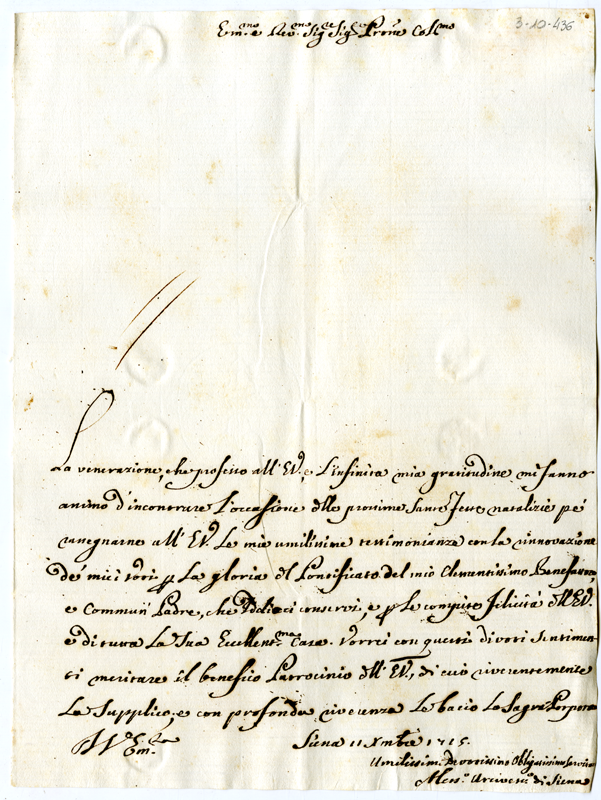 3-10-436
Em.mo e Rev.mo Sig.re Sig.re Prone Col.mo
La venerazione, che professo all'E.V., e l'infinita mia gratitudine mi fanno
animo d'incontrare l'occasione delle prossime Sante Feste natalizie pe
rasegnarne all'E.V. Le mie umilissime testimonianze con la innovazione
de' miei voti p La gloria del Pontificato del mio Clementissimo Benefattore,
e Commun Padre, che Iddio ci conservi, e p le compite felicità dell'E.V.
e di tutta La Sua Eccellent.ma Casa. Vorrei con questi divoti sentimen
ti meritare il benefico Patrocinio dell'E.V., di cui riverentemente
La Supplico; e con profonda riverenza Le bacio La Sagra Porpora
Siena 11 Xmbre 1715.
Umilissim. Devotissimo Obligatissimo Servitore
Aless.o Arcives.o di Siena